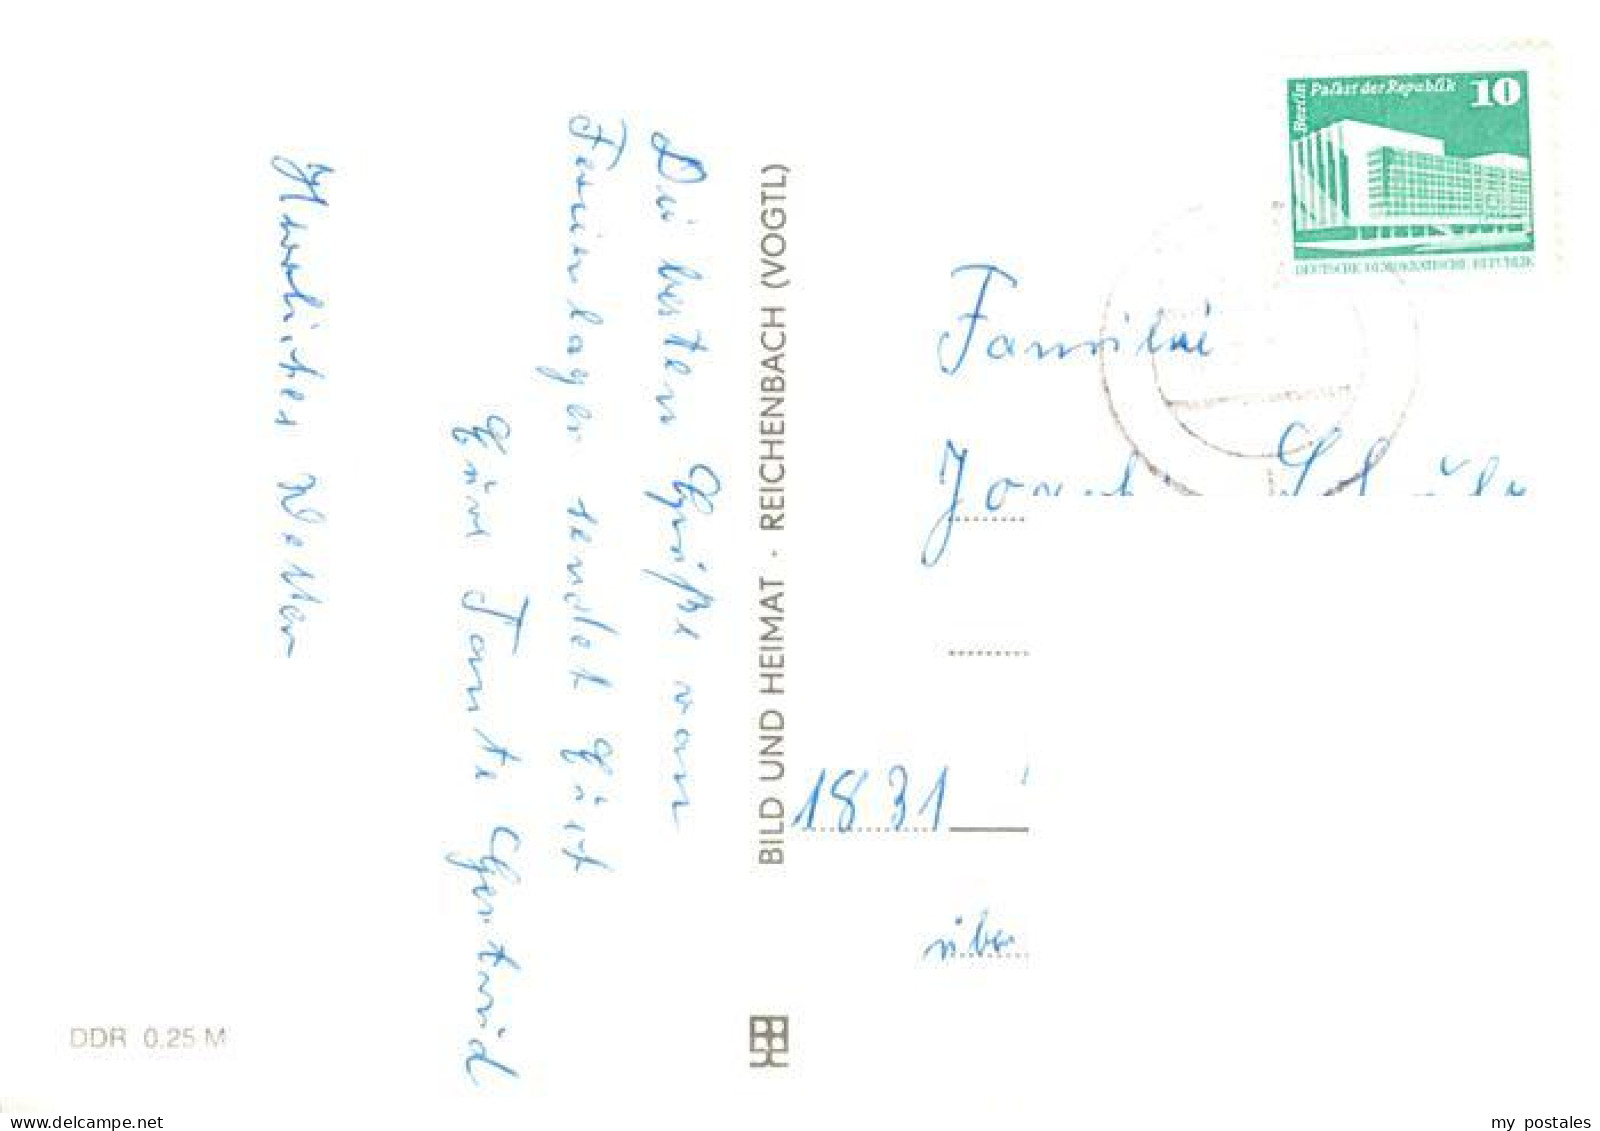 Die besten Grüße vom
Ferienlager sendet Euch
Eure Tante Gertrud
Herrliches Wetter
BILD UND HEIMAT · REICHENBACH (VOGTL)
DDR 0.25 M
Berlin
Palast der Republik 10
DEUTSCHE DEMOKRATISCHE REPUBLIK
Familie
Josef
1831
über
www.delcampe.net
my_postales